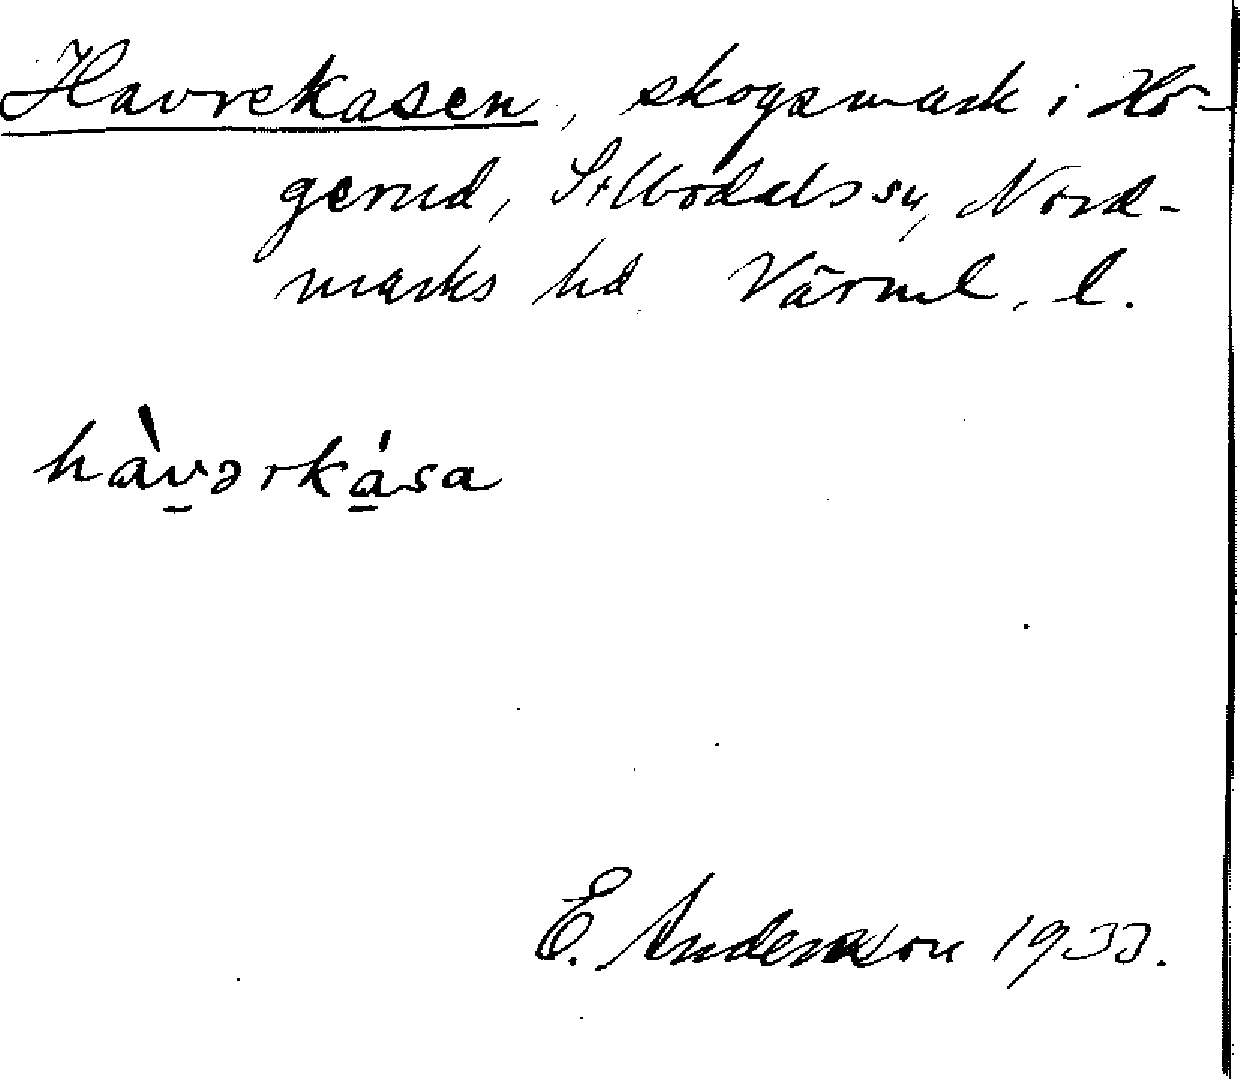 Havrekasen, skogsmark i Hö-
gerud, Silbodals sn, Nord-
marks hd. Värml. l.
hàvərkása
E. Andersson 1933.